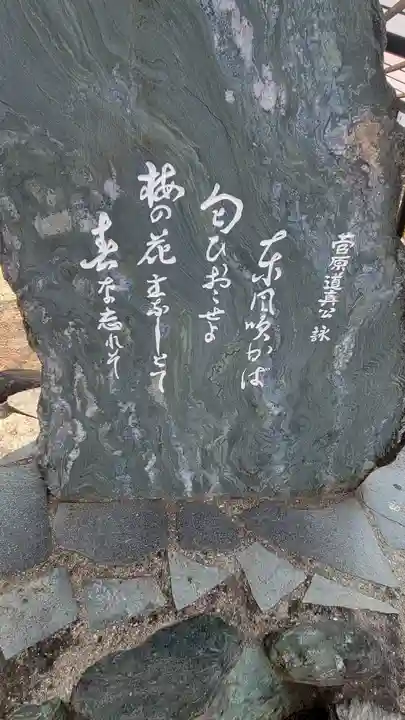 菅原道真公 詠
東風吹かば
匂ひおこせよ
梅の花 主なしとて
春な忘れそ